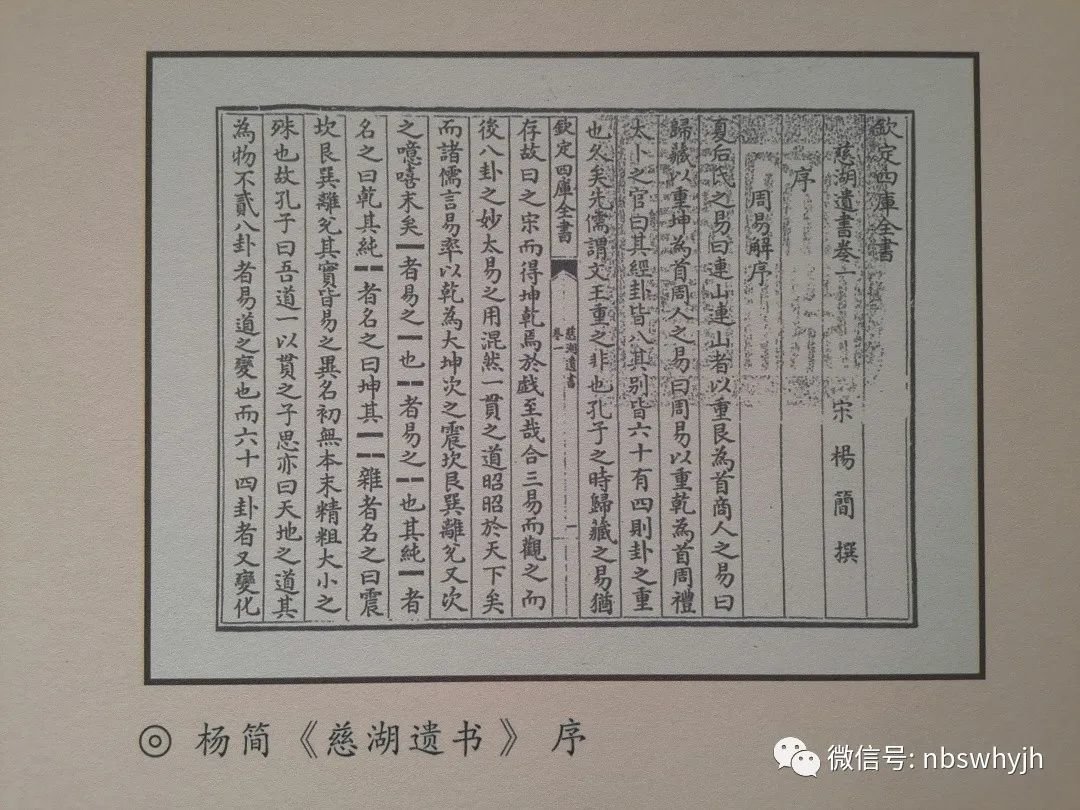 欽定四庫全書
慈湖遺書卷一
宋 楊簡 撰
序
周易解序
夏后氏之易曰連山連山者以重艮為首商人之易曰
歸藏以重坤為首周人之易曰周易以重乾為首周禮
太卜之官曰其經卦皆八其别皆六十有四則卦之重
也久矣先儒謂文王重之非也孔子之時歸藏之易猶
欽定四庫全書
慈湖遺書
卷一
一
存故曰之宋而得坤乾焉於戲至哉合三易而觀之而
後八卦之妙太易之用混然一貫之道昭昭於天下矣
而諸儒言易率以乾為大坤次之震坎艮巽離兌又次
之噫嘻末矣⚊者易之⚊也⚋者易之⚋也其純⚊者
名之曰乾其純⚋者名之曰坤其⚊⚋雜者名之曰震
坎艮巽離兌其實皆易之異名初無本末精粗大小之
殊也故孔子曰吾道一以貫之子思亦曰天地之道其
為物不貳八卦者易道之變也而六十四卦者又變化
◎ 杨简《慈湖遗书》 序
微信号: nbswhyjh